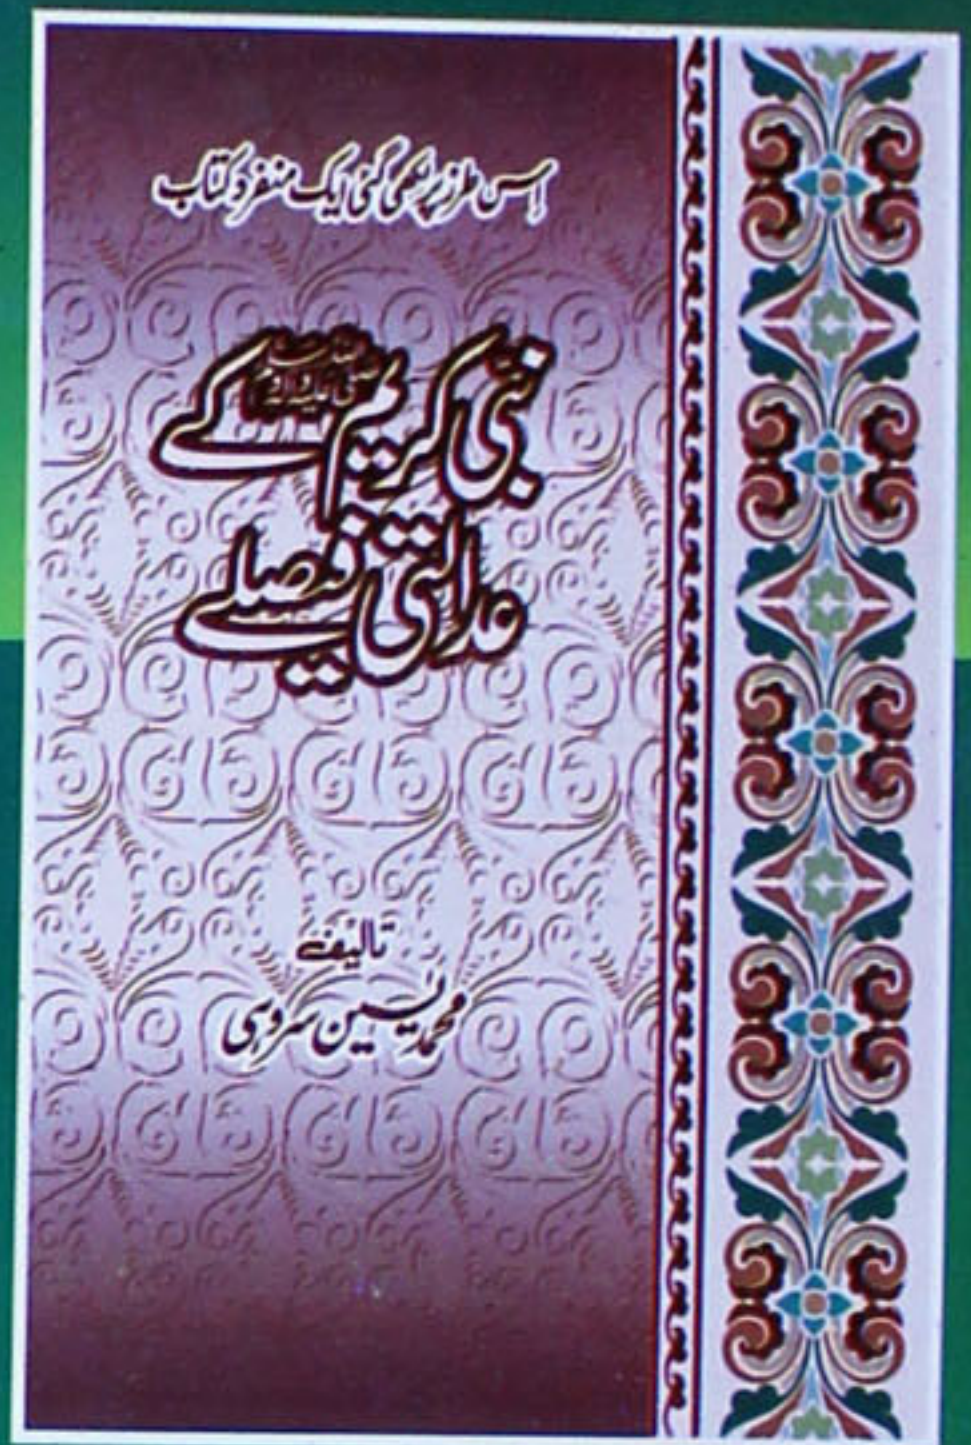 اس طرز پر لکھی گئی ایک منفرد کتاب
نبی کریم صلی اللہ علیہ وآلہ وسلم کے
عدالتی فیصلے
تالیف
محمد یٰسین سروہی